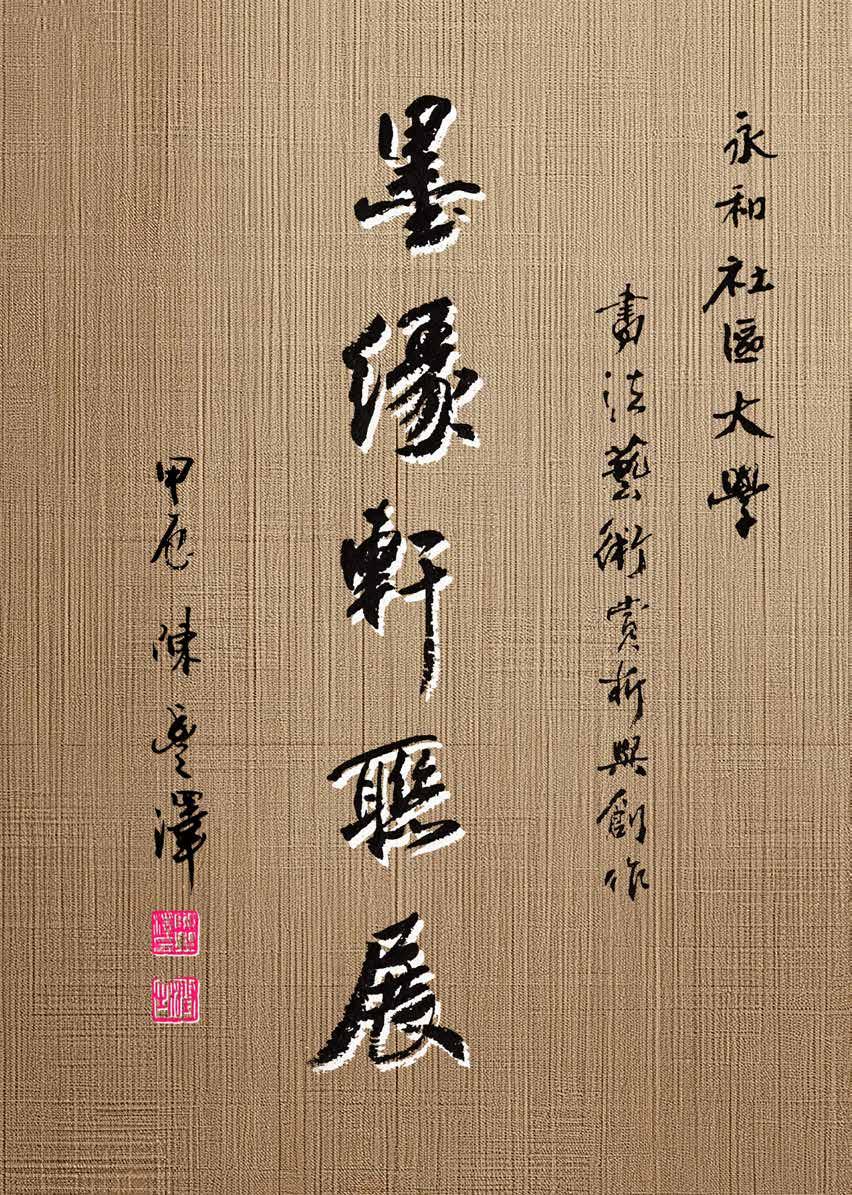 永和社區大學
書法藝術賞析與創作
墨緣軒聯展
甲辰 陳豐澤